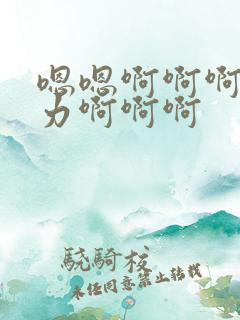 嗯嗯啊啊啊
力啊啊啊
骁骑校
未经同意禁止转载